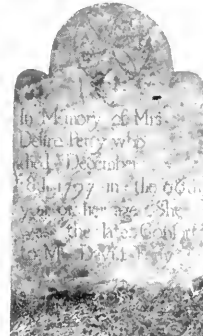 In Memory of Mrs.
Desire Perry who
died December
8th 1797 in the 66th
year of her age She
was the late Consort
to Mr. David Perry